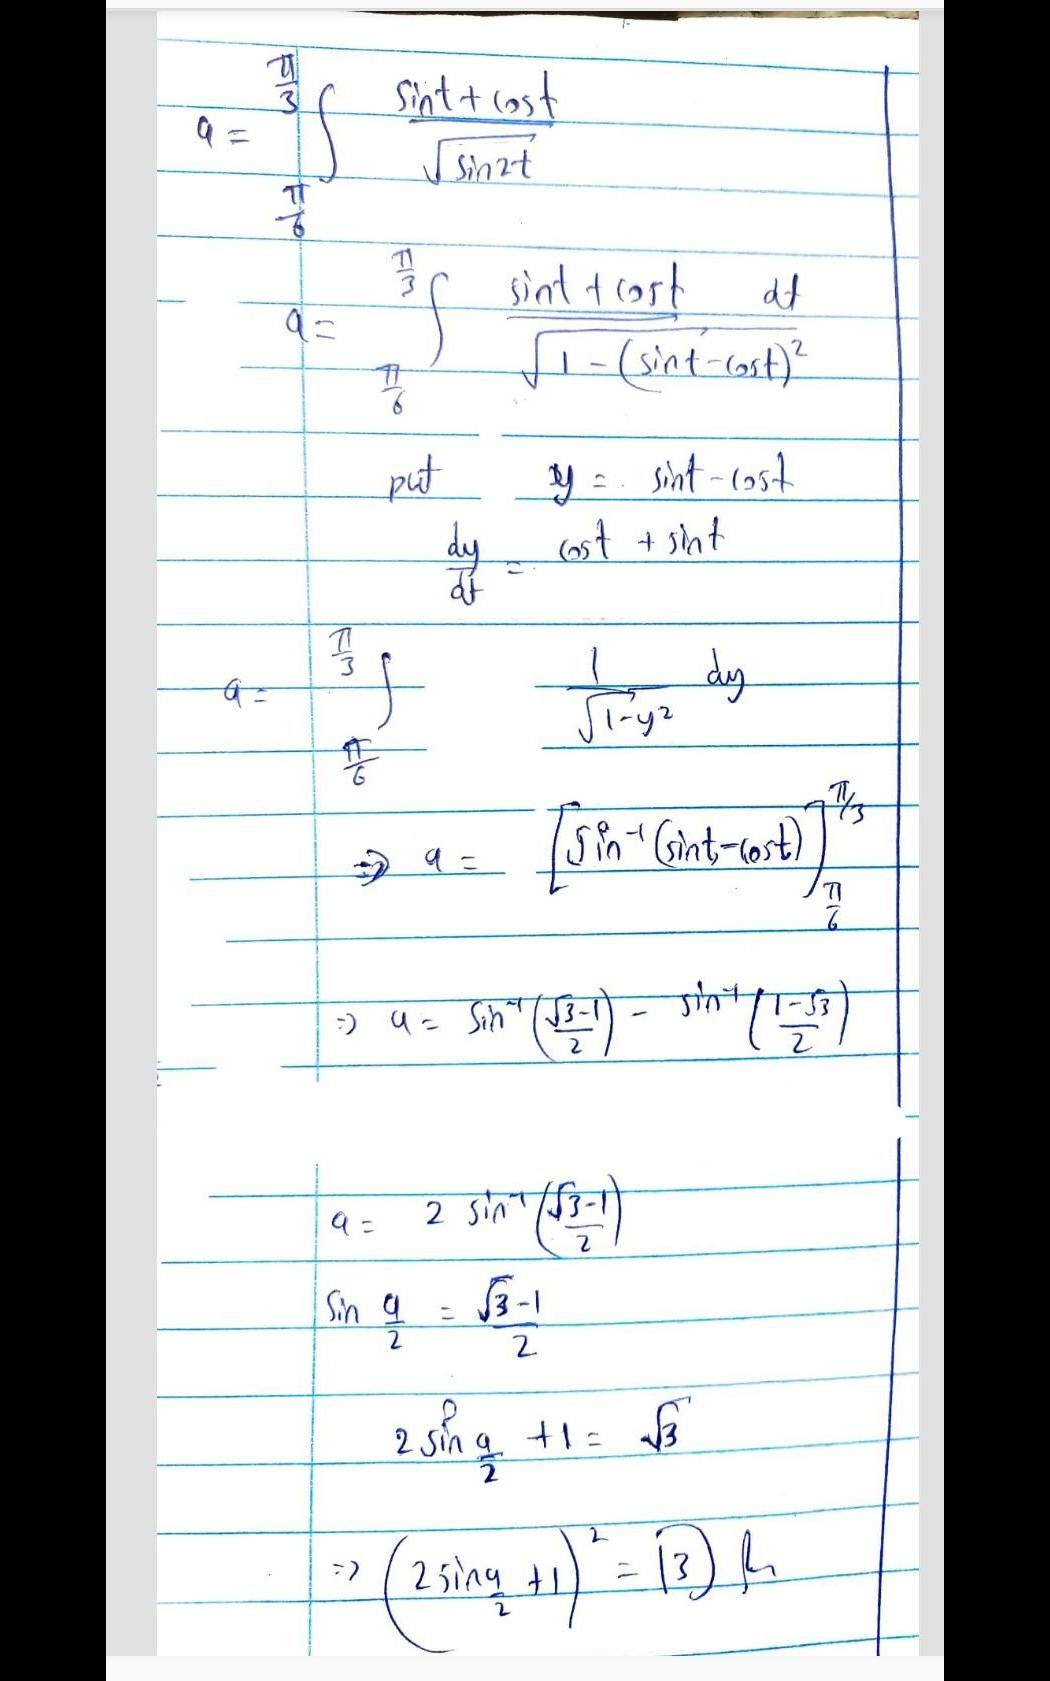 a = ∫_{π/6}^{π/3} (sint + cost) / √(sin2t)
a = ∫_{π/6}^{π/3} (sint + cost dt) / √(1 - (sint - cost)²)
put y = sint - cost
dy/dt = cost + sint
a = ∫_{π/6}^{π/3} 1/√(1-y²) dy
⇒ a = [sin⁻¹(sint - cost)]_{π/6}^{π/3}
⇒ a = sin⁻¹((√3-1)/2) - sin⁻¹((1-√3)/2)
a = 2 sin⁻¹((√3-1)/2)
sin a/2 = (√3-1)/2
2 sin a/2 + 1 = √3
⇒ (2 sin a/2 + 1)² = 3